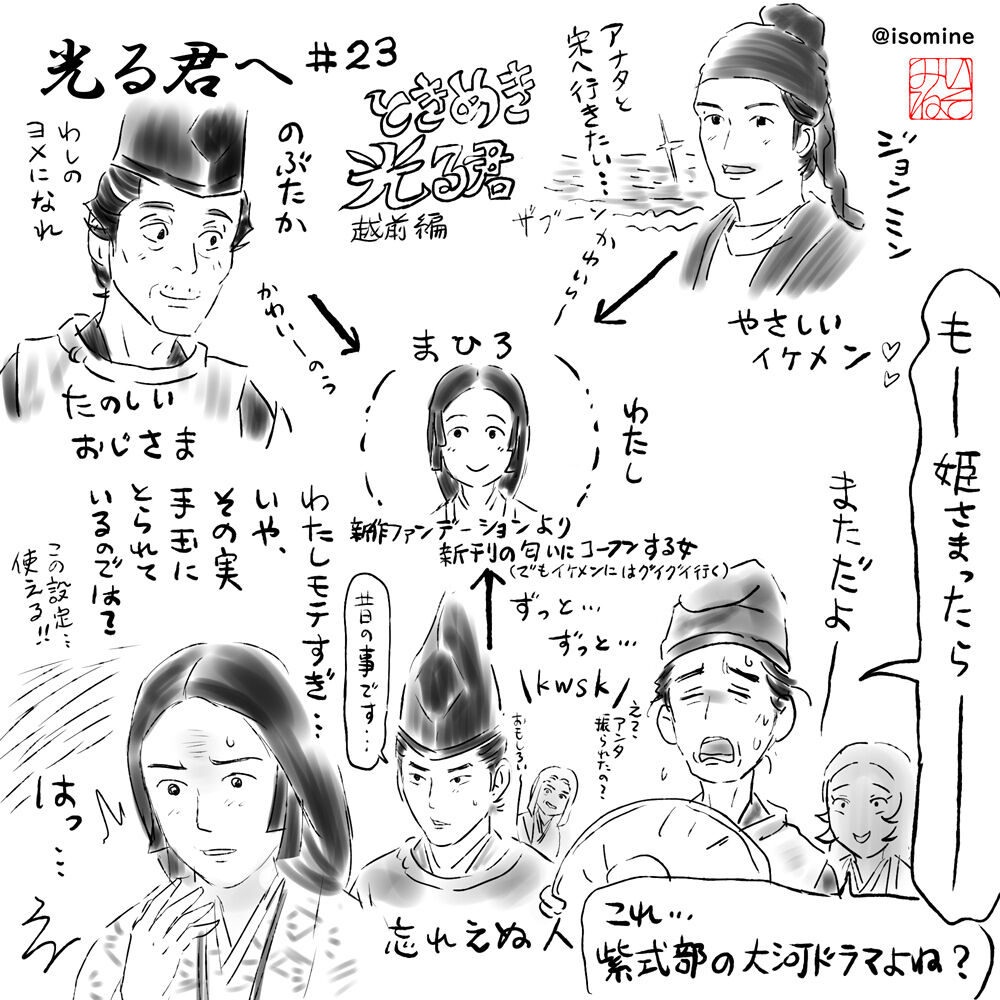 光る君へ #23
@isomine
いそ
みね
ときめき
光る君
越前編
アナタと
宋へ行きたい…
ザブーン
かわいい
ジョンミン
やさしい
イケメン
のぶたか
わしの
ヨメになれ
かわいーのぅ
たのしい
おじさま
まひろ
わたし
新作ファンデーションより
新刊の匂いにコーフンする女
(でもイケメンにはグイグイ行く)
もー姫さまったらー
まただよー
わたしモテすぎ…
いや、
その実
手玉に
とられて
いるのでは?
この設定…
使える!!
はっ…
昔の事です…
ずっと…
ずっと…
\kwsk/
おもしろい
えて、
アンタ
振られたの?
忘れえぬ人
これ…
紫式部の大河ドラマよね?